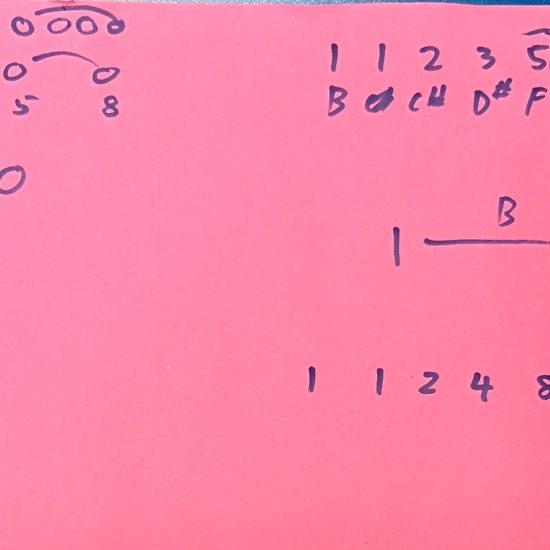 0 000
0 0
5 8
0
1 1 2 3 5
B C# D# F
B
1
1 1 2 4 8